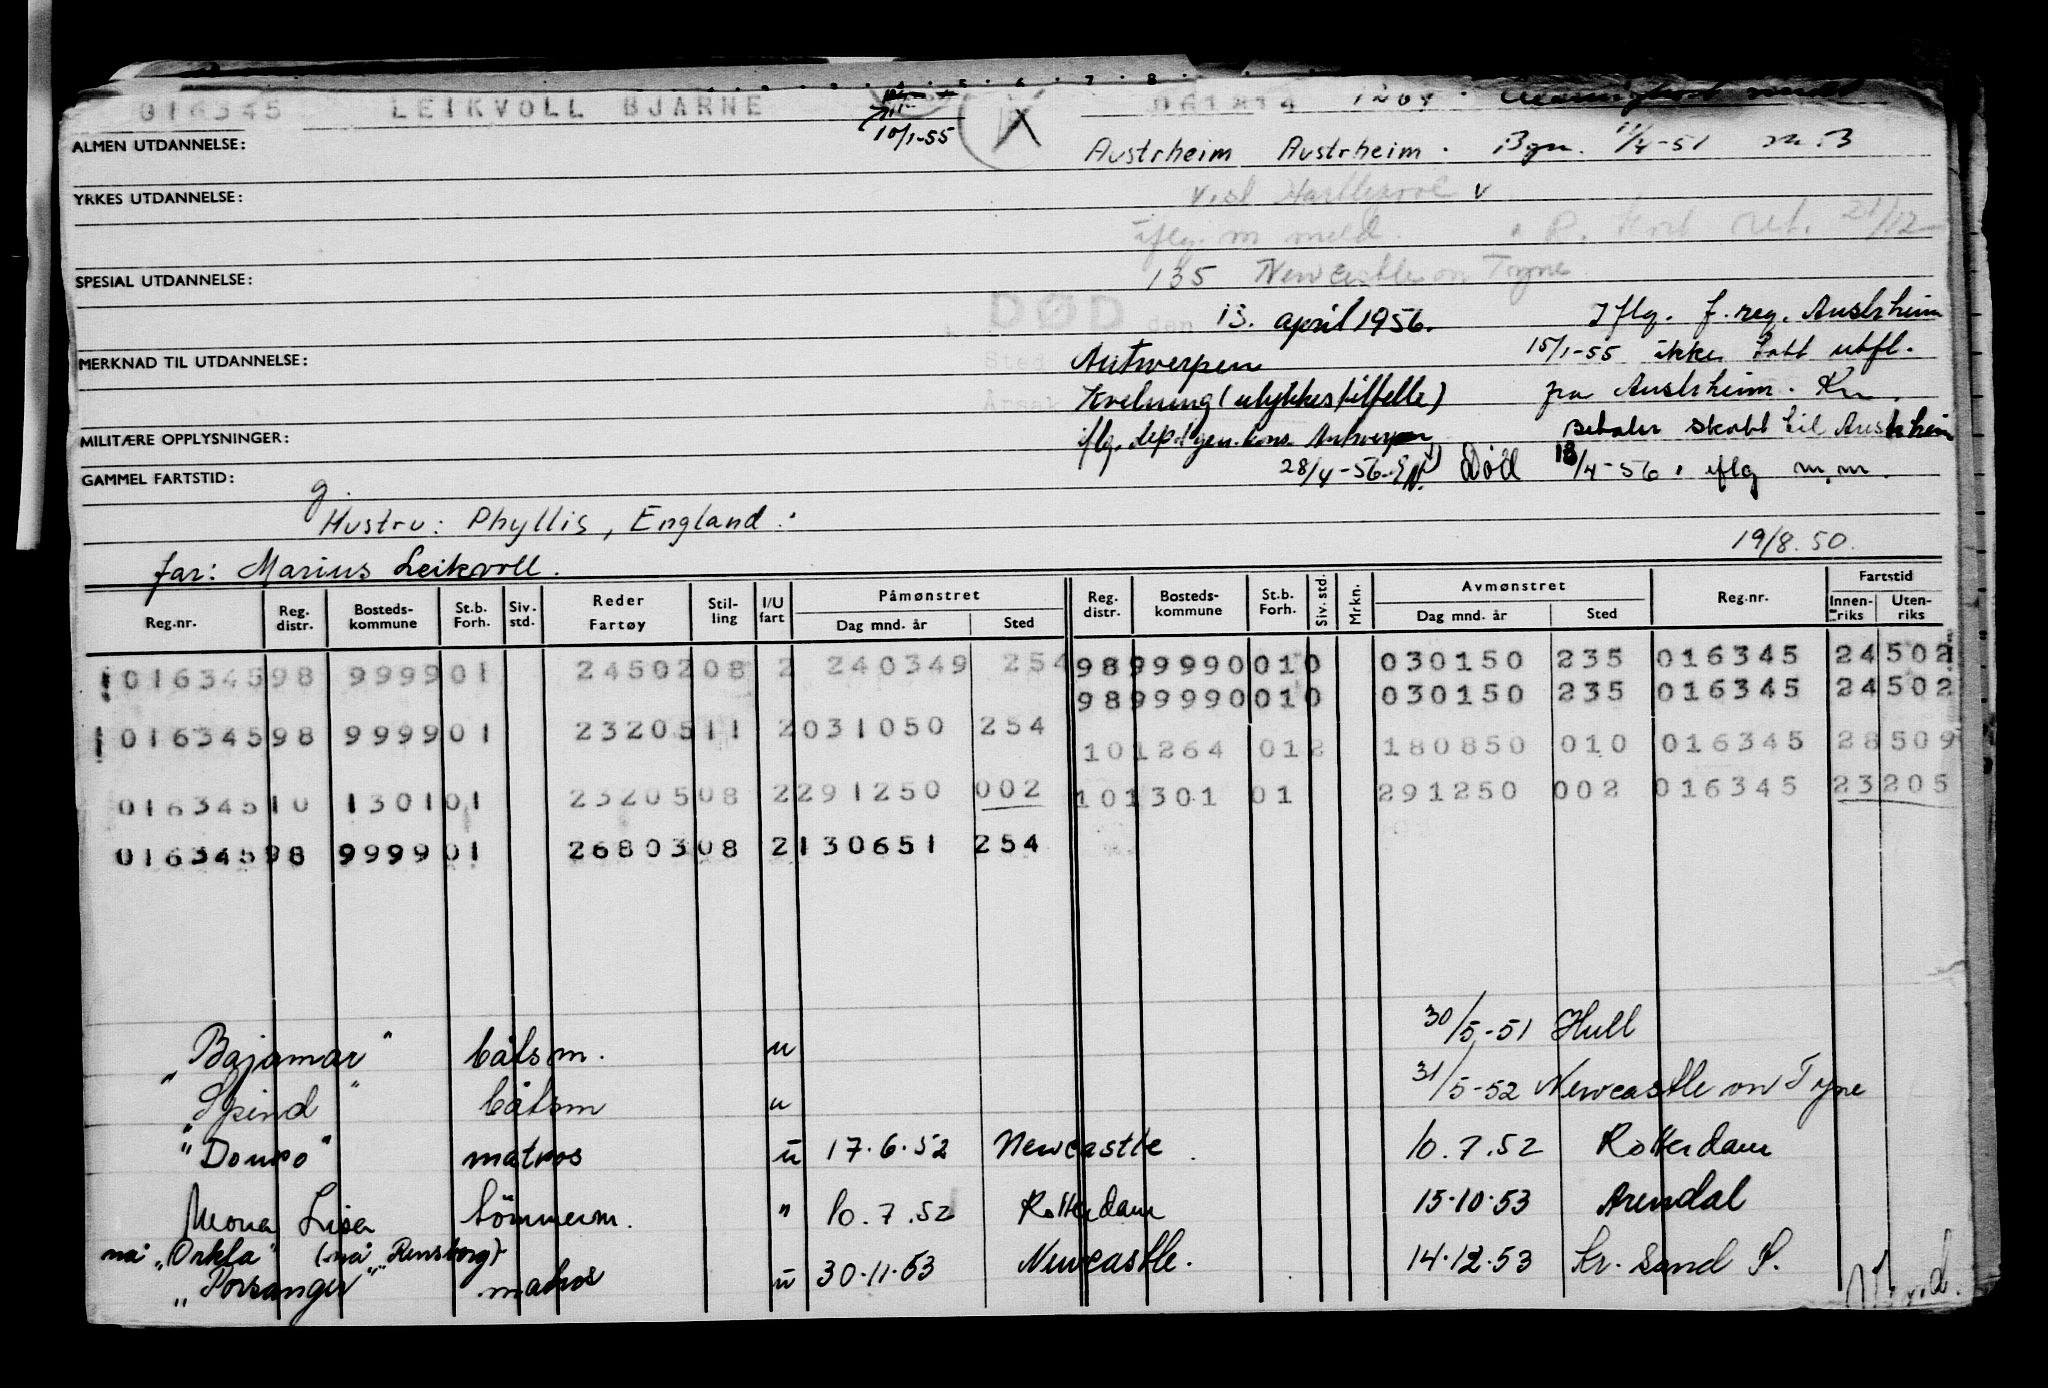 016345 LEIKVOLL BJARNE 041214 1264
10/1-55
ALMEN UTDANNELSE:
Austrheim Austrheim. 11/4-51
YRKES UTDANNELSE:
v.st Hartlepool v
iflg. m meld. R. kort ret. 21/12
SPESIAL UTDANNELSE:
135 Newcastle on Tyne
DØD den 13. april 1956.
Iflg. f. reg. Austrheim
MERKNAD TIL UTDANNELSE:
Sted Antwerpen
15/1-55 ikke tatt utfl.
Årsak Kvelning (ulykkestilfelle)
fra Austrheim.
MILITÆRE OPPLYSNINGER:
iflg. gen. kons. Antwerpen
Betaler skatt til Austrheim
28/4-56. Død 13/4-56. iflg m.m.
GAMMEL FARTSTID:
g.
Hustru: Phyllis, England.
19/8.50.
far: Marius Leikvoll.
Reg.nr. Reg. distr. Bosteds-kommune St.b. Forh. Siv. std. Reder Fartøy Stil-ling I/U fart Påmønstret Dag mnd. år Sted Reg. distr. Bosteds-kommune St.b. Forh. Siv. std. Mrkn. Avmønstret Dag mnd. år Sted Reg.nr. Fartstid Innen-riks Uten-riks
01634598 999901 2450208 2 240349 254 9899990010 030150 235 016345 24502
9899990010 030150 235 016345 24502
01634598 999901 2320511 2031050 254
101264 012 180850 010 016345 28509
01634510 130101 2320508 2291250 002 101301 01 291250 002 016345 23205
01634598 999901 2680308 2130651 254
"Bajamar" båtsm. u 30/5-51 Hull
"Spind" båtsm u 31/5-52 Newcastle on Tyne
"Douro" matros u 17.6.52 Newcastle. 10.7.52 Rotterdam
Mona Lisa tömmerm. " 10.7.52 Rotterdam 15.10.53 Arendal
nå "Orkla" (nå "Rensborg")
"Porsanger" matros u 30.11.53 Newcastle. 14.12.53 Kr. sand S.